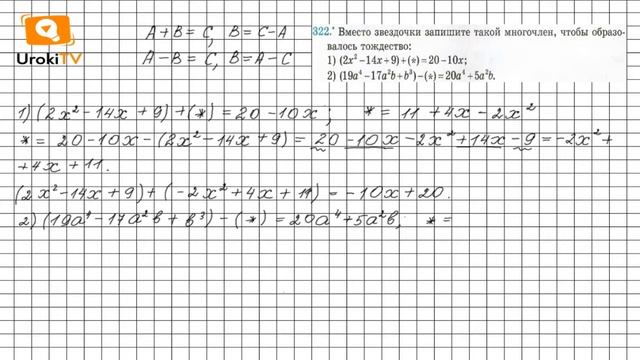 UrokiTV
A + B = C, B = C - A
A - B = C, B = A - C
322.* Вместо звездочки запишите такой многочлен, чтобы образо-
валось тождество:
1) (2x² - 14x + 9) + (*) = 20 - 10x;
2) (19a⁴ - 17a²b + b³) - (*) = 20a⁴ + 5a²b.
1) (2x² - 14x + 9) + (*) = 20 - 10x ; * = 11 + 4x - 2x²
* = 20 - 10x - (2x² - 14x + 9) = 20 - 10x - 2x² + 14x - 9 = -2x² +
+ 4x + 11.
(2x² - 14x + 9) + (-2x² + 4x + 11) = -10x + 20
2) (19a⁴ - 17a²b + b³) - (*) = 20a⁴ + 5a²b; * =